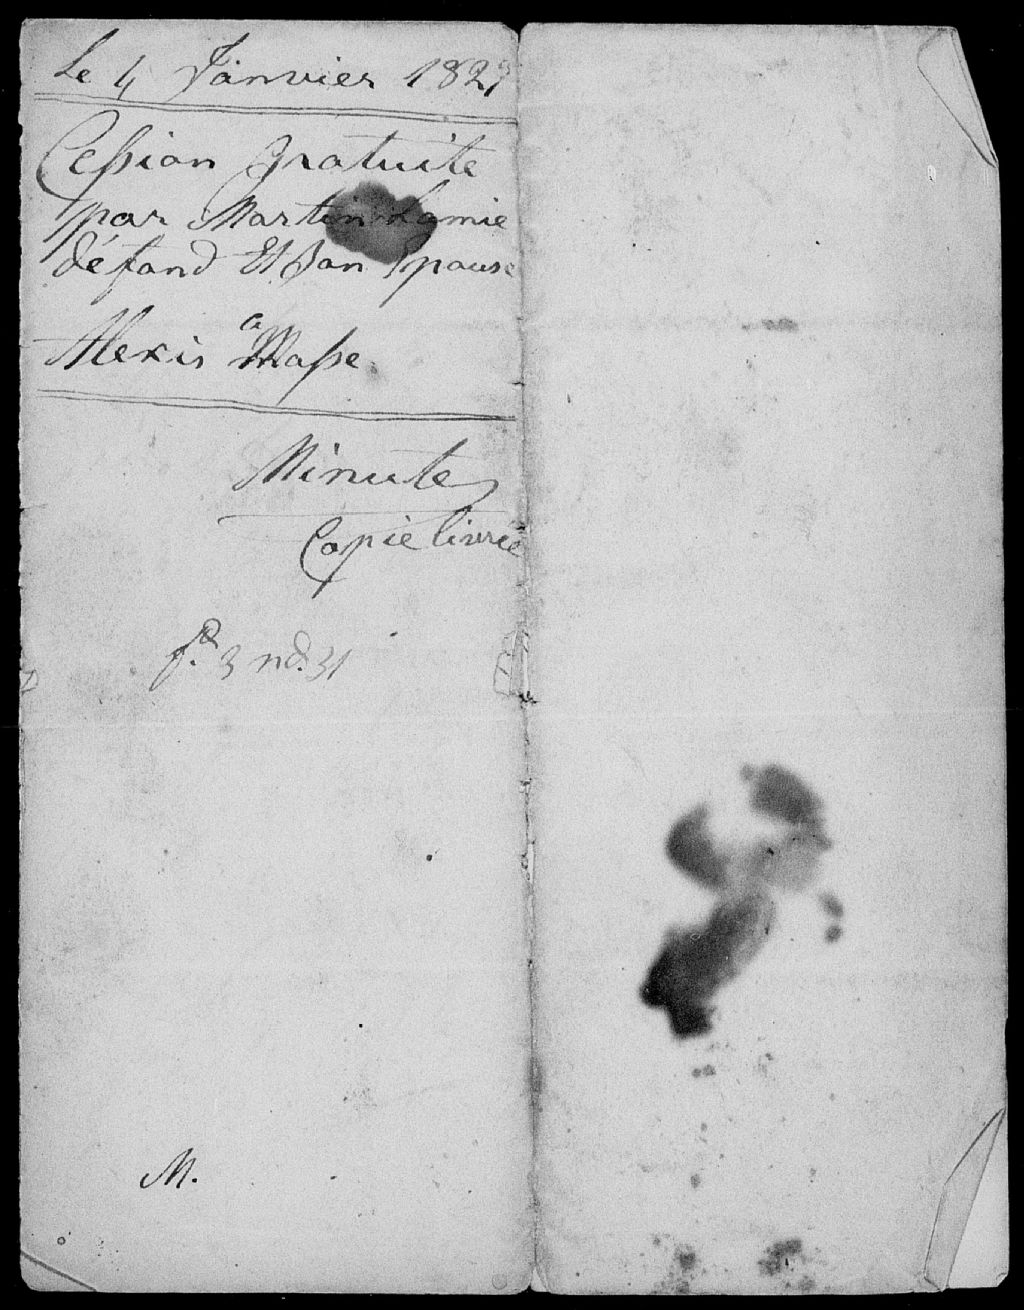 Le 4 Janvier 182
Cession Gratuite
par Martin Lamie
défond Et Son Epouse
a
Alexis Masse
Minute
Copie livrée
fd. 3 nd. 31
M.